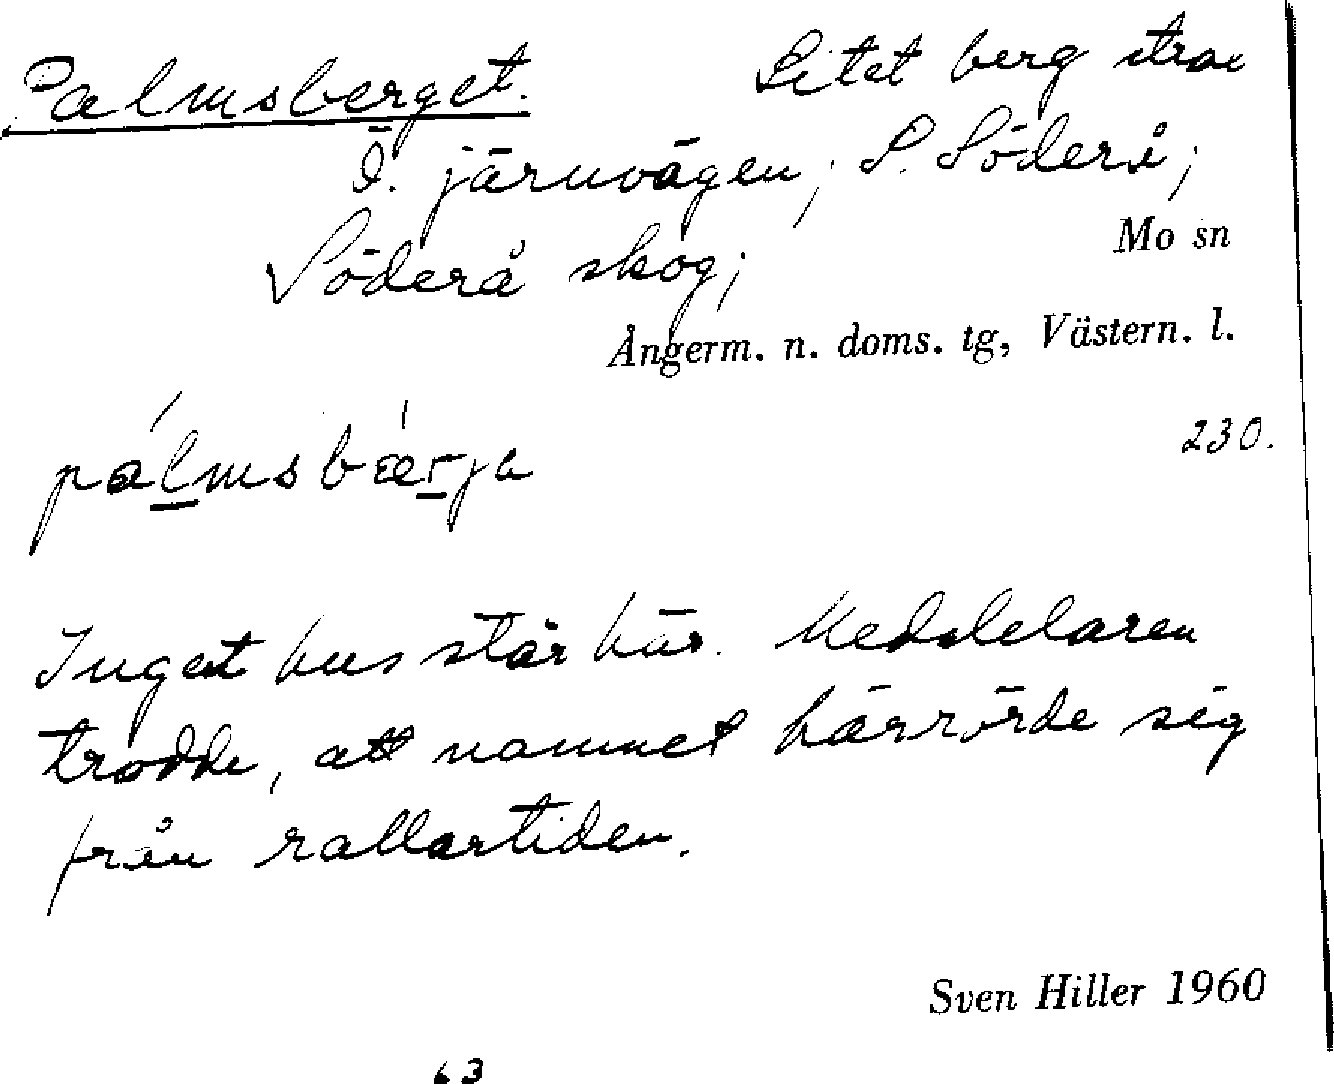 Palmsberget. Litet berg strax
Ö. järnvägen; S. Söderå;
Söderå skog;
Mo sn
Ångerm. n. doms. tg, Västern. l.
230.
pálmsbǽrja
Inget hus står här. Meddelaren
trodde, att namnet härrörde sig
från rallartiden.
Sven Hiller 1960
63